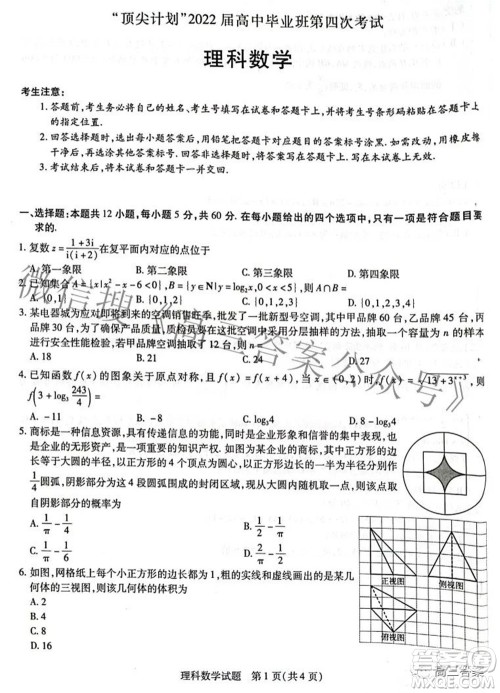 “顶尖计划”2022届高中毕业班第四次考试
理科数学
考生注意:
1. 答题前,考生务必将自己的姓名、考生号填写在试卷和答题卡上,并将考生号条形码粘贴在答题卡上的指定位置.
2. 回答选择题时,选出每小题答案后,用铅笔把答题卡对应题目的答案标号涂黑.如需改动,用橡皮擦
干净后,再选涂其他答案标号.回答非选择题时,将答案写在答题卡上.写在本试卷上无效.
3. 考试结束后,将本试卷和答题卡一并交回.
一、选择题:本题共12小题,每小题5分,共60分.在每小题给出的四个选项中,只有一项是符合题目要
求的.
1. 复数z=(1+3i)/(i(i+2))在复平面内对应的点位于
A. 第一象限 B. 第二象限 C. 第三象限 D. 第四象限
2. 已知集合A={x|x²-x-6<0},B={y|y∈N|y=x,0<x<5},则A∩B=
A. {0,1} B. {0,1,2} C. {0,1,2,3} D. {0,1,2,3,4}
3. 某电器城为应对即将到来的空调销售旺季,批发了一批新型号空调,其中甲品牌60台,乙品牌45台,丙
品牌30台,为了确保产品质量,质检员要在这批空调中采用分层抽样的方法,抽取一个容量为n的样本
进行安全性能检验,若甲品牌空调抽取了12台,则n=
A. 18 B. 21 C. 24 D. 27
4. 已知函数f(x)的图象关于原点对称,当x∈
f(3+log₃ 243/4)=
A. -11 B. -8 C. log₃4 D. 8-log₃4
5. 商标是一种信息资源,具有传递信息的功能,同时也是企业形象和信誉的集中表现,也
是企业的无形资产,是一项重要的知识产权.如图,某商标的平面图形由一个正方形
内接于圆,以正方形的4个顶点为圆心,以正方形的边长的一半为半径在正方形内作
1/4圆弧,得到阴影为这4段圆弧所形成的封闭区域,现在大圆内随机取一点,则此点取
自阴影部分的概率为
A. 1/π-1/4 B. 1/2-1/π
C. 1/π-1/6 D. 2/π-1/2
6. 如图,网格纸上每个小正方形的边长都为1,粗的实线和虚线画出的是某几
何体的三视图,则该几何体的体积为
A. 2
B. 4
C. 8
D. 16
正视图 侧视图
俯视图
理科数学试题 第1页(共4页)
微信搜《高三答案公众号》
高三答案